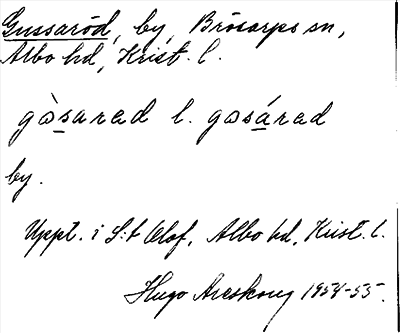 Gussaröd, by, Brösarps sn,
Albo hd, Krist. l.
gɷ̀sarad l. gɷsárad
by.
Uppt. i S:t Olof, Albo hd, Krist. l.
Hugo Areskoug 1954-55.